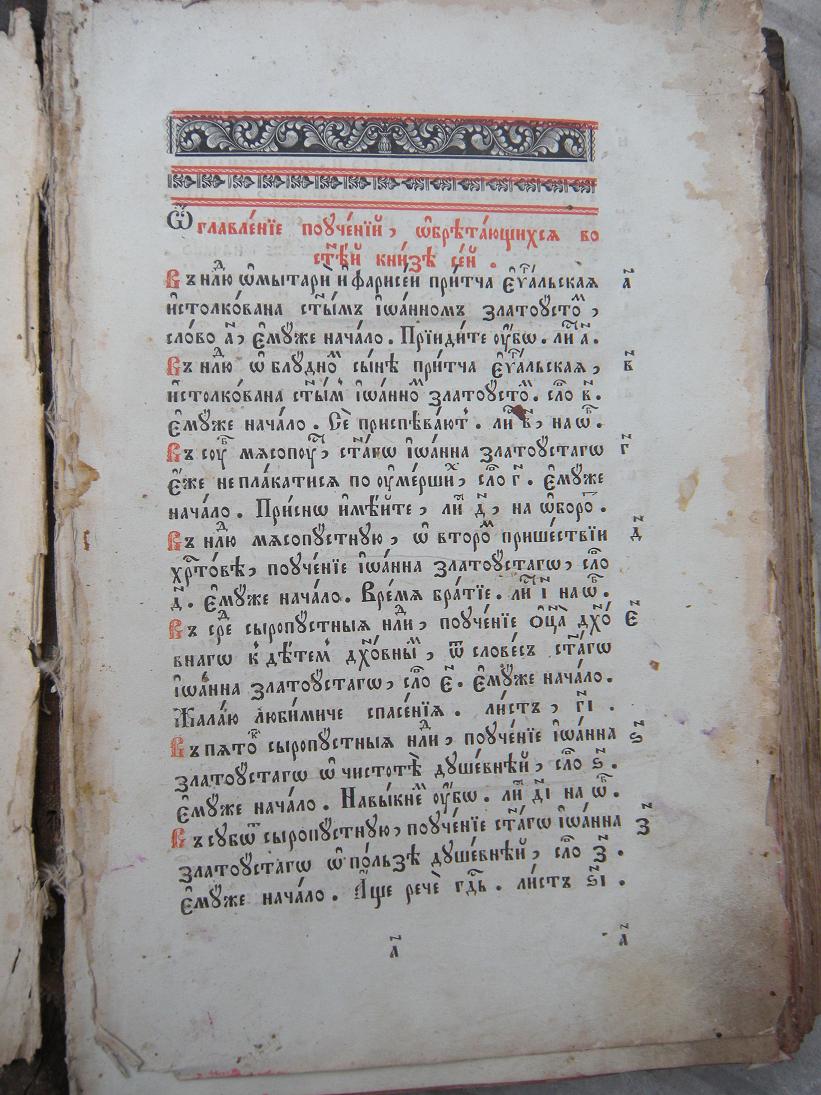 Ѡ҆главле́нїе поуче́нїй, ѡ҆брѣта́ющихсѧ во
ст҃ѣ́й кни́зѣ се́й .
Въ нⷣлю ѡ҆мытарѝ и҆фарисеи при́тча є҆ѵⷢ҇а́льскаѧ а҃
и҆столко́вана ст҃ы́мъ і҆ѡа́нномъ златоꙋстоⷨ,
сло́во а҃, є҆мꙋ́же нача́ло . Прїиди́те ᲂу҆́бѡ . лиⷭ҇ а҃ .
Въ нⷣлю ѡ҆ блꙋ́дноⷨ сы́нѣ при́тча є҆ѵⷢ҇а́льскаѧ, в҃
и҆столко́вана ст҃ы́ⷨ і҆ѡа́нноⷨ златоꙋстоⷨ . слⷪ҇о в҃ .
є҆мꙋ́же нача́ло . Сѐ приспѣва́ют . лиⷭ҇ в҃, на ѡ҆ⷠ .
Въ соуⷠ мѧсопоуⷭ҇, ст҃а́гѡ і҆ѡа́нна златоꙋ́стагѡ г҃
є҆́же непла́катисѧ по ᲂу҆ме́ршиⷯ, слⷪ҇о г҃ . є҆мꙋ́же
нача́ло . При́снѡ и҆мѣ́йте, лиⷭ҇ д҃, на ѡ҆бороⷮ .
Въ нⷣлю мѧсопꙋстнꙋю, ѡ҆ второⷨ прише́ствїи д҃
хрⷭ҇то́вѣ, поуче́нїе і҆ѡа́нна златоꙋ́стагѡ, слⷪ҇о
д҃ . є҆мꙋ́же нача́ло . Вре́мѧ бра́тїе . лиⷭ҇ і҃ на ѡ҆ⷠ .
Въ сⷣре сыропꙋ́стныѧ нⷣли, поуче́нїе ѻ҆ц҃а̀ дх҃о́ є҃
внагѡ к дѣ́тем дх҃о́вныⷨ, ѿ слове́съ ст҃а́гѡ
і҆ѡа́нна златоꙋ́стагѡ, слⷪ҇о є҃ . є҆мꙋ́же нача́ло .
Жала́ю люби́миче спасе́нїѧ . ли́стъ, г҃і .
Въ пѧтоⷦ҇ сыропꙋ́стныѧ нⷣли, поуче́нїе і҆ѡа́нна ѕ҃
златоꙋ́стагѡ ѡ҆ чистотѣ̀ дꙋше́внѣй, слⷪ҇о ѕ҃ .
є҆мꙋ́же нача́ло . Навы́кнеⷨ ᲂу҆́бѡ . лиⷭ҇ д҃і на ѡ҆ⷠ .
Въ сꙋбѡⷮ сыропꙋ́стнꙋю, поуче́нїе ст҃а́гѡ і҆ѡа́нна з҃
златоꙋ́стагѡ ѡ҆ по́льзѣ дꙋше́внѣй, слⷪ҇о з҃ .
є҆мꙋ́же нача́ло . А҆́ще речѐ гдⷭ҇ь . ли́стъ ѕ҃і .
а҃ а҃